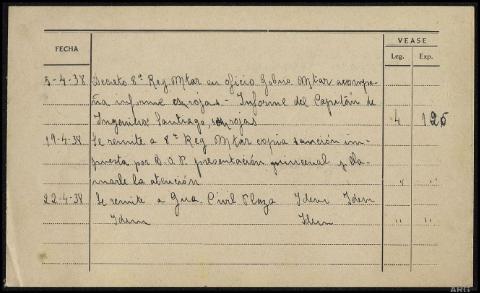 VEASE
FECHA
Leg. Exp.
5-4-38 Decreto 8ª Reg Mtar en oficio Gobno Mtar acompa-
ña informe ezrojas.- Informe del Capitán de
Ingenieros Santiago ezrojas 4 126
19-4-38 Se remite a 8ª Reg Mtar copia sanción im-
puesta por presentación quincenal y
la atención " "
22-4-38 Se remite a Gua. Civil Plaza Idem Idem
Idem Idem " "